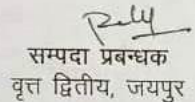 सम्पदा प्रबन्धक
वृत्त द्वितीय, जयपुर